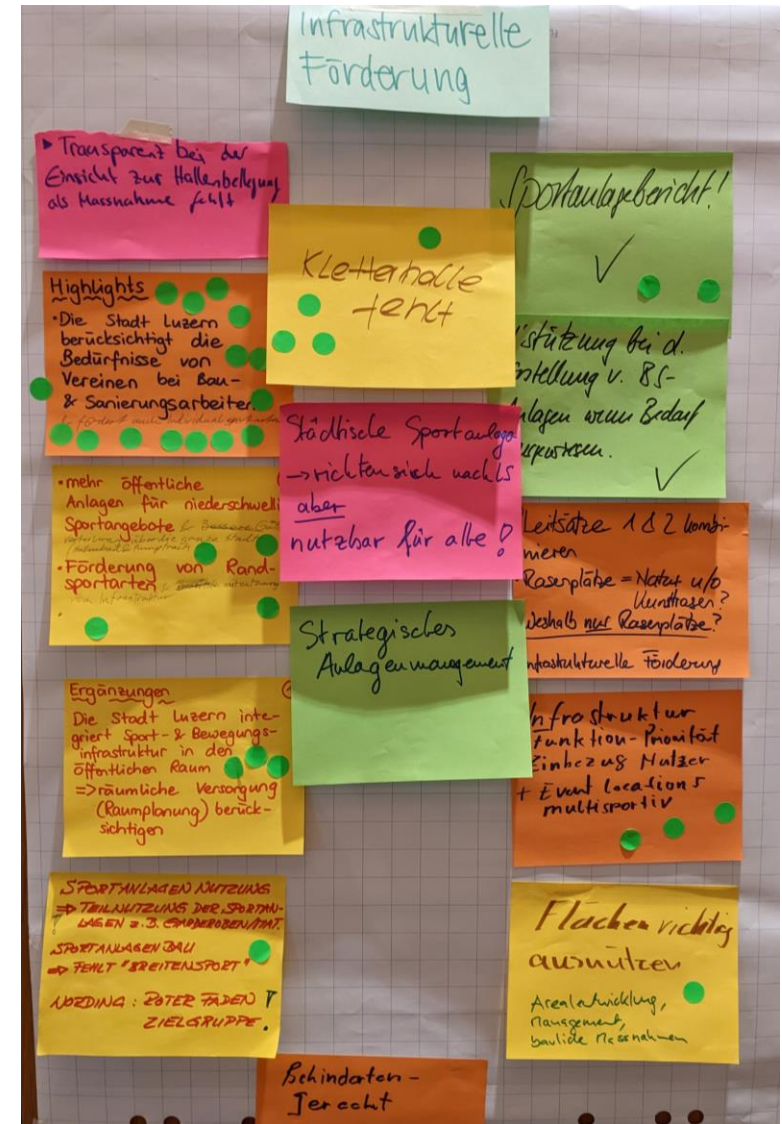 Infrastrukturelle
Förderung
▸ Transparenz bei der
Einsicht zur Hallenbelegung
als Massnahme fehlt
Highlights
• Die Stadt Luzern
berücksichtigt die
Bedürfnisse von
Vereinen bei Bau-
& Sanierungsarbeiten.
• mehr öffentliche
Anlagen für niederschwell
Sportangebote
• Förderung von Rand-
sportarten
Ergänzungen
Die Stadt Luzern inte-
griert Sport- & Bewegungs-
infrastruktur in den
öffentlichen Raum
=> räumliche Versorgung
(Raumplanung) berück-
sichtigen
SPORTANLAGEN NUTZUNG
=> TEILNUTZUNG DER SPORTAN-
LAGEN z.B. GARDEROBEN/MAT.
SPORTANLAGEN BAU
=> FEHLT "BREITENSPORT"
WORDING: ROTER FADEN
ZIELGRUPPE
Kletterhalle
fehlt
Städtische Sportanlage
→ richten sich nach LS
aber
nutzbar für alle!
Strategisches
Anlagenmanagement
Behinderten-
Gerecht
Sportanlagebericht!
✓
stützung bei d.
stellung v. BS-
Anlagen wenn Bedarf
✓
Leitsätze 1 & 2 kombi-
nieren
Rasenplätze = Natur u/o
Kunstrasen?
Weshalb nur Rasenplätze?
Infrastrukturelle Förderung
Infrastruktur
Funktion-Priorität
Einbezug Nutzer
+ Event locations
multisportiv
Flächen richtig
ausnützen
Arealentwicklung,
Management,
bauliche Massnahmen